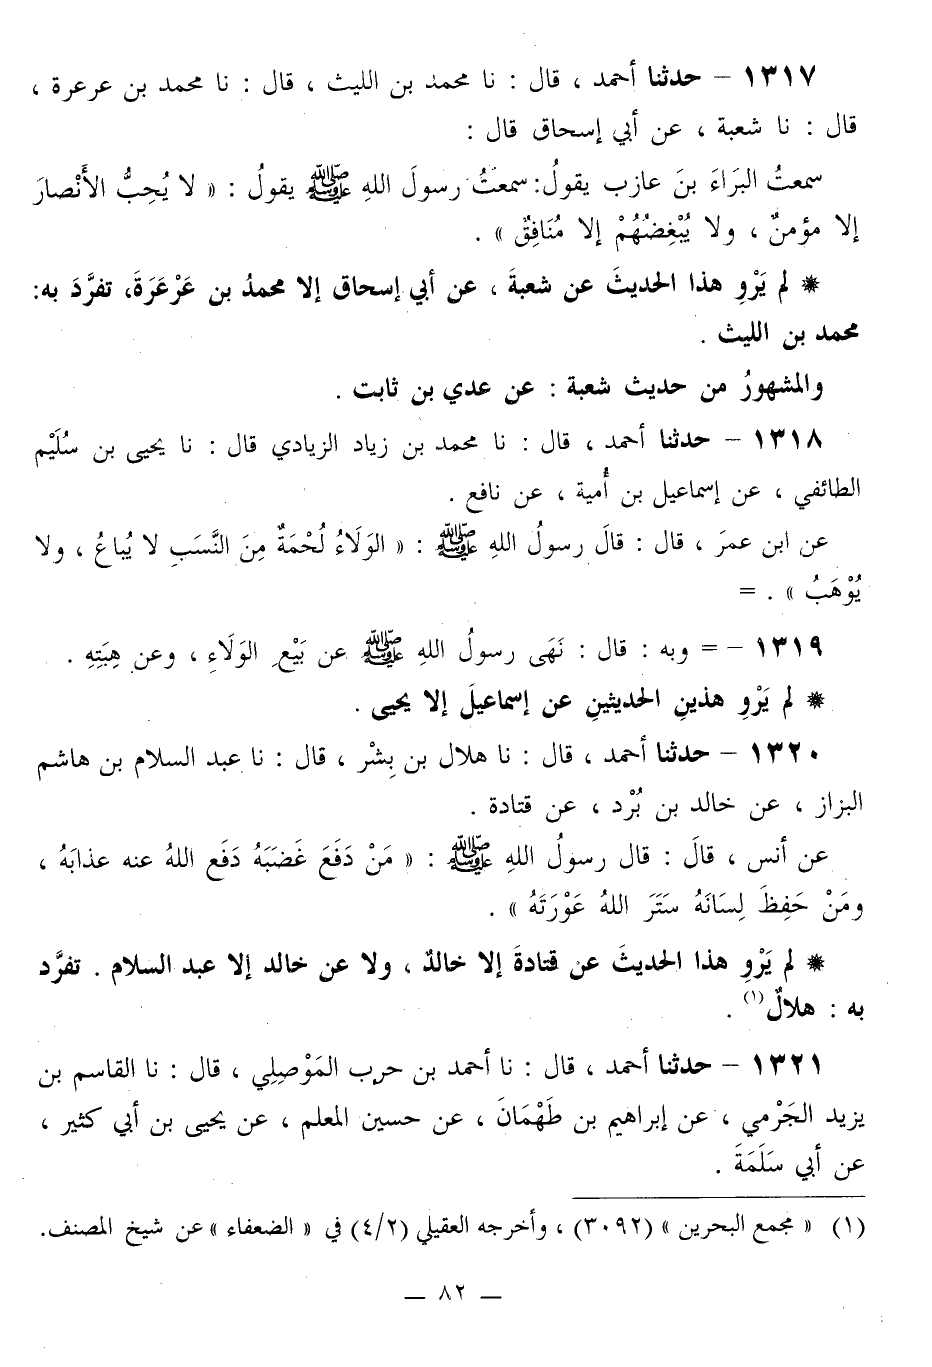 ١٣١٧ – حدثنا أحمد ، قال : نا محمد بن الليث ، قال : نا محمد بن عرعرة ،
قال : نا شعبة ، عن أبي إسحاق قال :
سمعتُ البَرَاءَ بنَ عازب يقولُ: سمعتُ رسولَ اللهِ ﷺ يقولُ : « لا يُحِبُّ الأَنْصارَ
إلا مؤمنٌ ، ولا يُبْغِضُهُمْ إلا مُنَافِقٌ » .
❋ لم يَرْوِ هذا الحديثَ عن شعبةَ ، عن أبي إسحاق إلا محمدُ بن عَرْعَرَةَ، تفرَّدَ به:
محمد بن الليث .
والمشهورُ من حديث شعبة : عن عدي بن ثابت .
١٣١٨ – حدثنا أحمد ، قال : نا محمد بن زياد الزيادي قال : نا يحيى بن سُلَيْم
الطائفي ، عن إسماعيل بن أُمية ، عن نافع .
عن ابن عمرَ ، قال : قالَ رسولُ اللهِ ﷺ : « الوَلَاءُ لُحْمَةٌ مِنَ النَّسَبِ لا يُباعُ ، ولا
يُوْهَبُ » . =
١٣١٩ – = وبه : قال : نَهَى رسولُ اللهِ ﷺ عن بَيْعِ الوَلَاءِ ، وعن هِبَتِهِ .
❋ لم يَرْوِ هذينِ الحديثينِ عن إسماعيلَ إلا يحيى .
١٣٢٠ – حدثنا أحمد ، قال : نا هلال بن بِشْر ، قال : نا عبد السلام بن هاشم
البزاز ، عن خالد بن بُرْد ، عن قتادة .
عن أنس ، قالَ : قال رسولُ اللهِ ﷺ : « مَنْ دَفَعَ غَضَبَهُ دَفَع اللهُ عنه عذابَهُ ،
ومَنْ حَفِظَ لِسَانَهُ سَتَرَ اللهُ عَوْرَتَهُ » .
❋ لم يَرْوِ هذا الحديثَ عن قتادةَ إلا خالدٌ ، ولا عن خالد إلا عبد السلام . تفرَّد
به : هلالٌ(١) .
١٣٢١ – حدثنا أحمد ، قال : نا أحمد بن حرب المَوْصِلِي ، قال : نا القاسم بن
يزيد الجَرْمي ، عن إبراهيم بن طَهْمَانَ ، عن حسين المعلم ، عن يحيى بن أبي كثير ،
عن أبي سَلَمَةَ .
(١) « مجمع البحرين » (٣٠٩٢) ، وأخرجه العقيلي (٤/٢) في « الضعفاء » عن شيخ المصنف.
— ٨٢ —